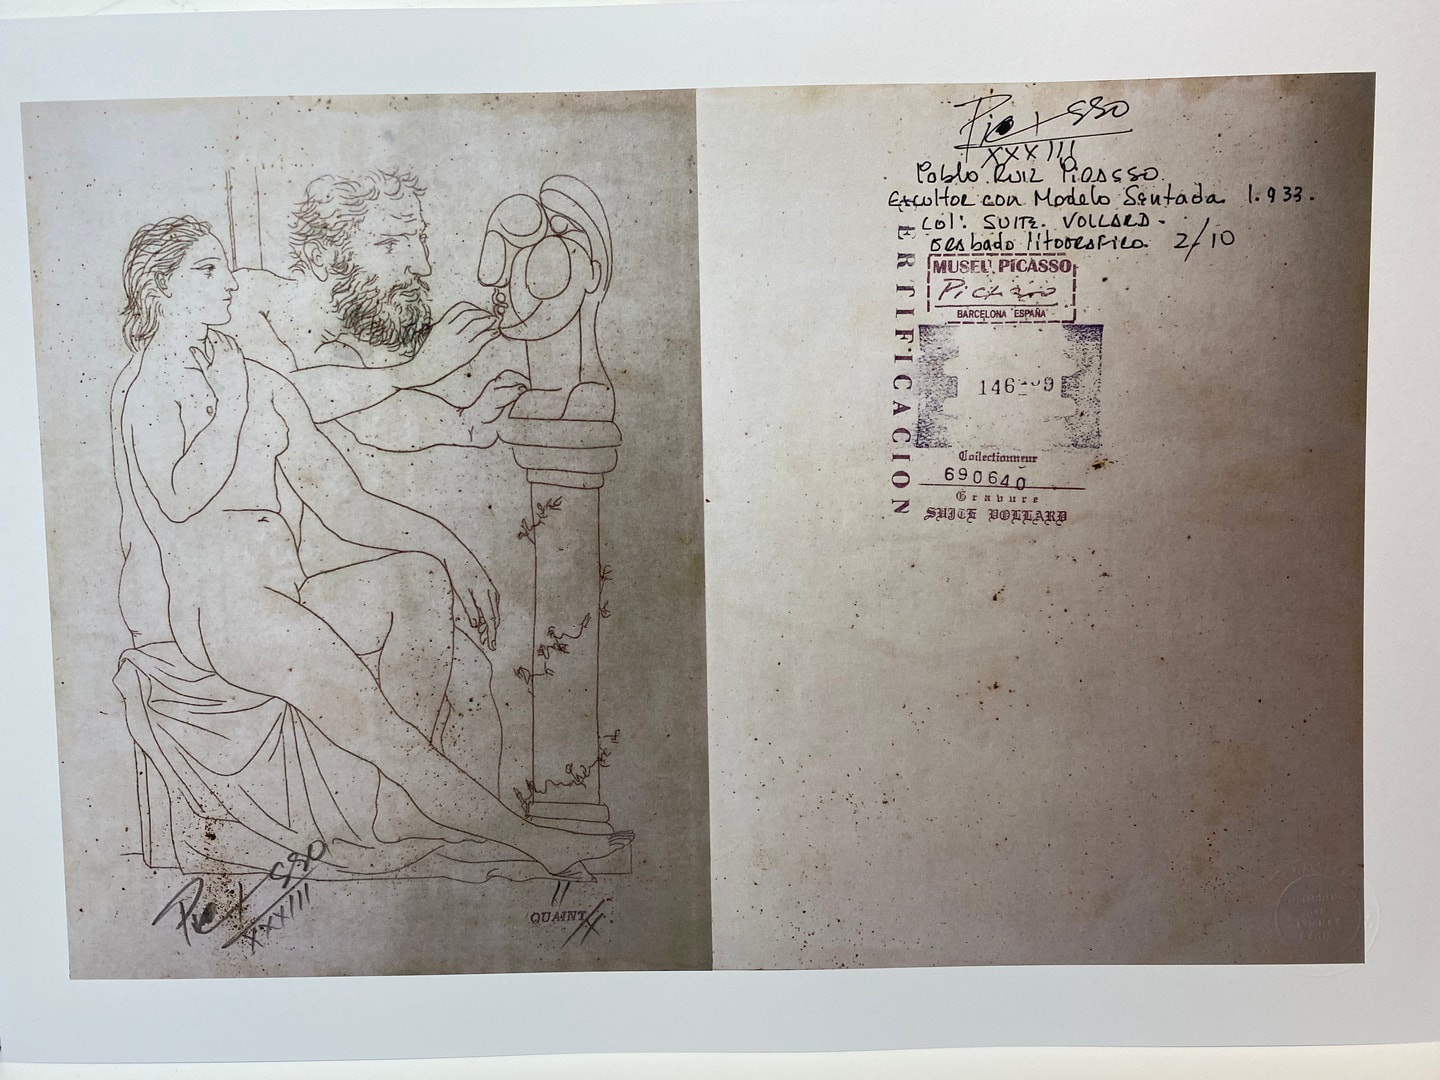 Picasso
XXXIII
QUAINT
II
Picasso
XXXIII
Pablo RUIZ PICASSO.
Escultor con Modelo Sentada 1.933.
Col: SUITE. VOLLARD -
Grabado litografico 2/10
CERTIFICACION
MUSEU PICASSO
Picasso
BARCELONA ESPAÑA
Collectionneur
690640
Gravure
SUITE VOLLARD